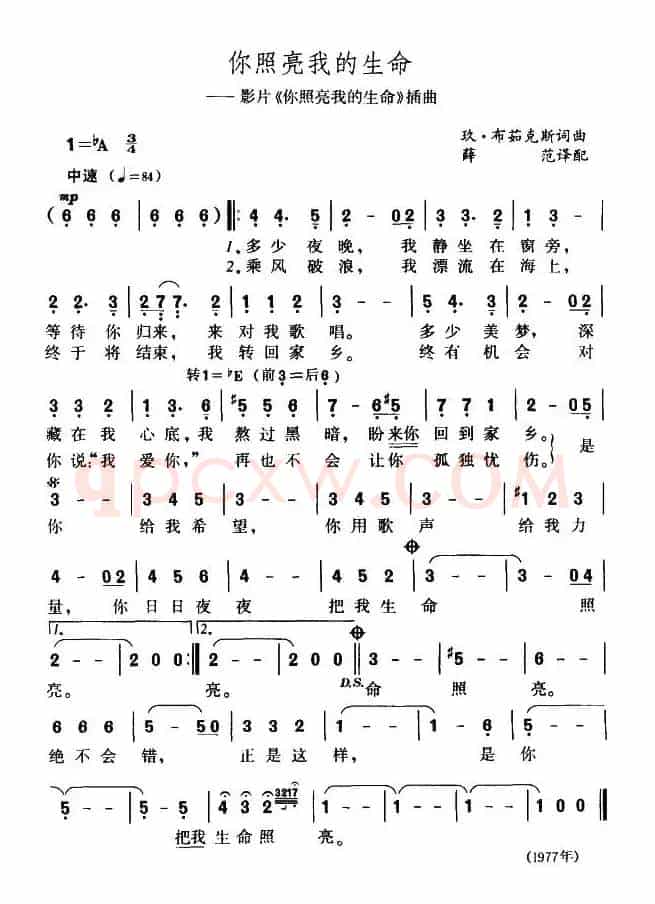 你照亮我的生命
—— 影片《你照亮我的生命》插曲
1=♭A 3/4
玖·布茹克斯词曲
中速（♩=84）
薛 范译配
mp
( 6 6 6 | 6 6 6 ) ‖: 4 4. 5 | 2 - 02 | 3 3. 2 | 3 - - |
1.多少夜晚， 我静坐在窗旁，
2.乘风破浪， 我漂流在海上，
2 2. 3 | 277. | 1 1 2 | 3 - - | 5 4. 3 | 2 - 02 |
等待你归来， 来对我歌唱。 多少美梦， 深
终于将结束， 我转回家乡。 终有机会 对
转1=♭E (前3=后6)
3 3 2 | 1 3. 6 | #5 5 6 | 7 - 6#5 | 7 7 1 | 2 - 05 |
藏在我心底，我熬过黑暗，盼来你回到家乡。 是
你说：“我爱你，”再也不会让你孤独忧伤。
3 - - | 3 4 5 | 3 - - | 3 4 5 | 3 - - | #1 2 3 |
你 给我希望， 你用歌声 给我力
4 - 02 | 4 5 6 | 4 - - | 5 4 2 | 3 - - | 3 - 04 |
量， 你日日夜夜 把我生命 照
1. 2.
2 - - | 2 0 0 :‖ 2 - - | 2 0 0 ‖ 3 - - | #5 - - | 6 - - |
亮。 亮。 D.S. 命 照 亮。
6 6 6 | 5 - - | 5 - 50 | 3 4 5 | 1 - - | 1 - - | 1 - 6 | 5
绝不会错， 正是这样， 是你
5 - - | 5 - 5 | 4 3 2 3217 | 1 - - | 1 - - | 1 - - | 1 0 0 ‖
把我生命照 亮。
(1977年)
qpcxw.com